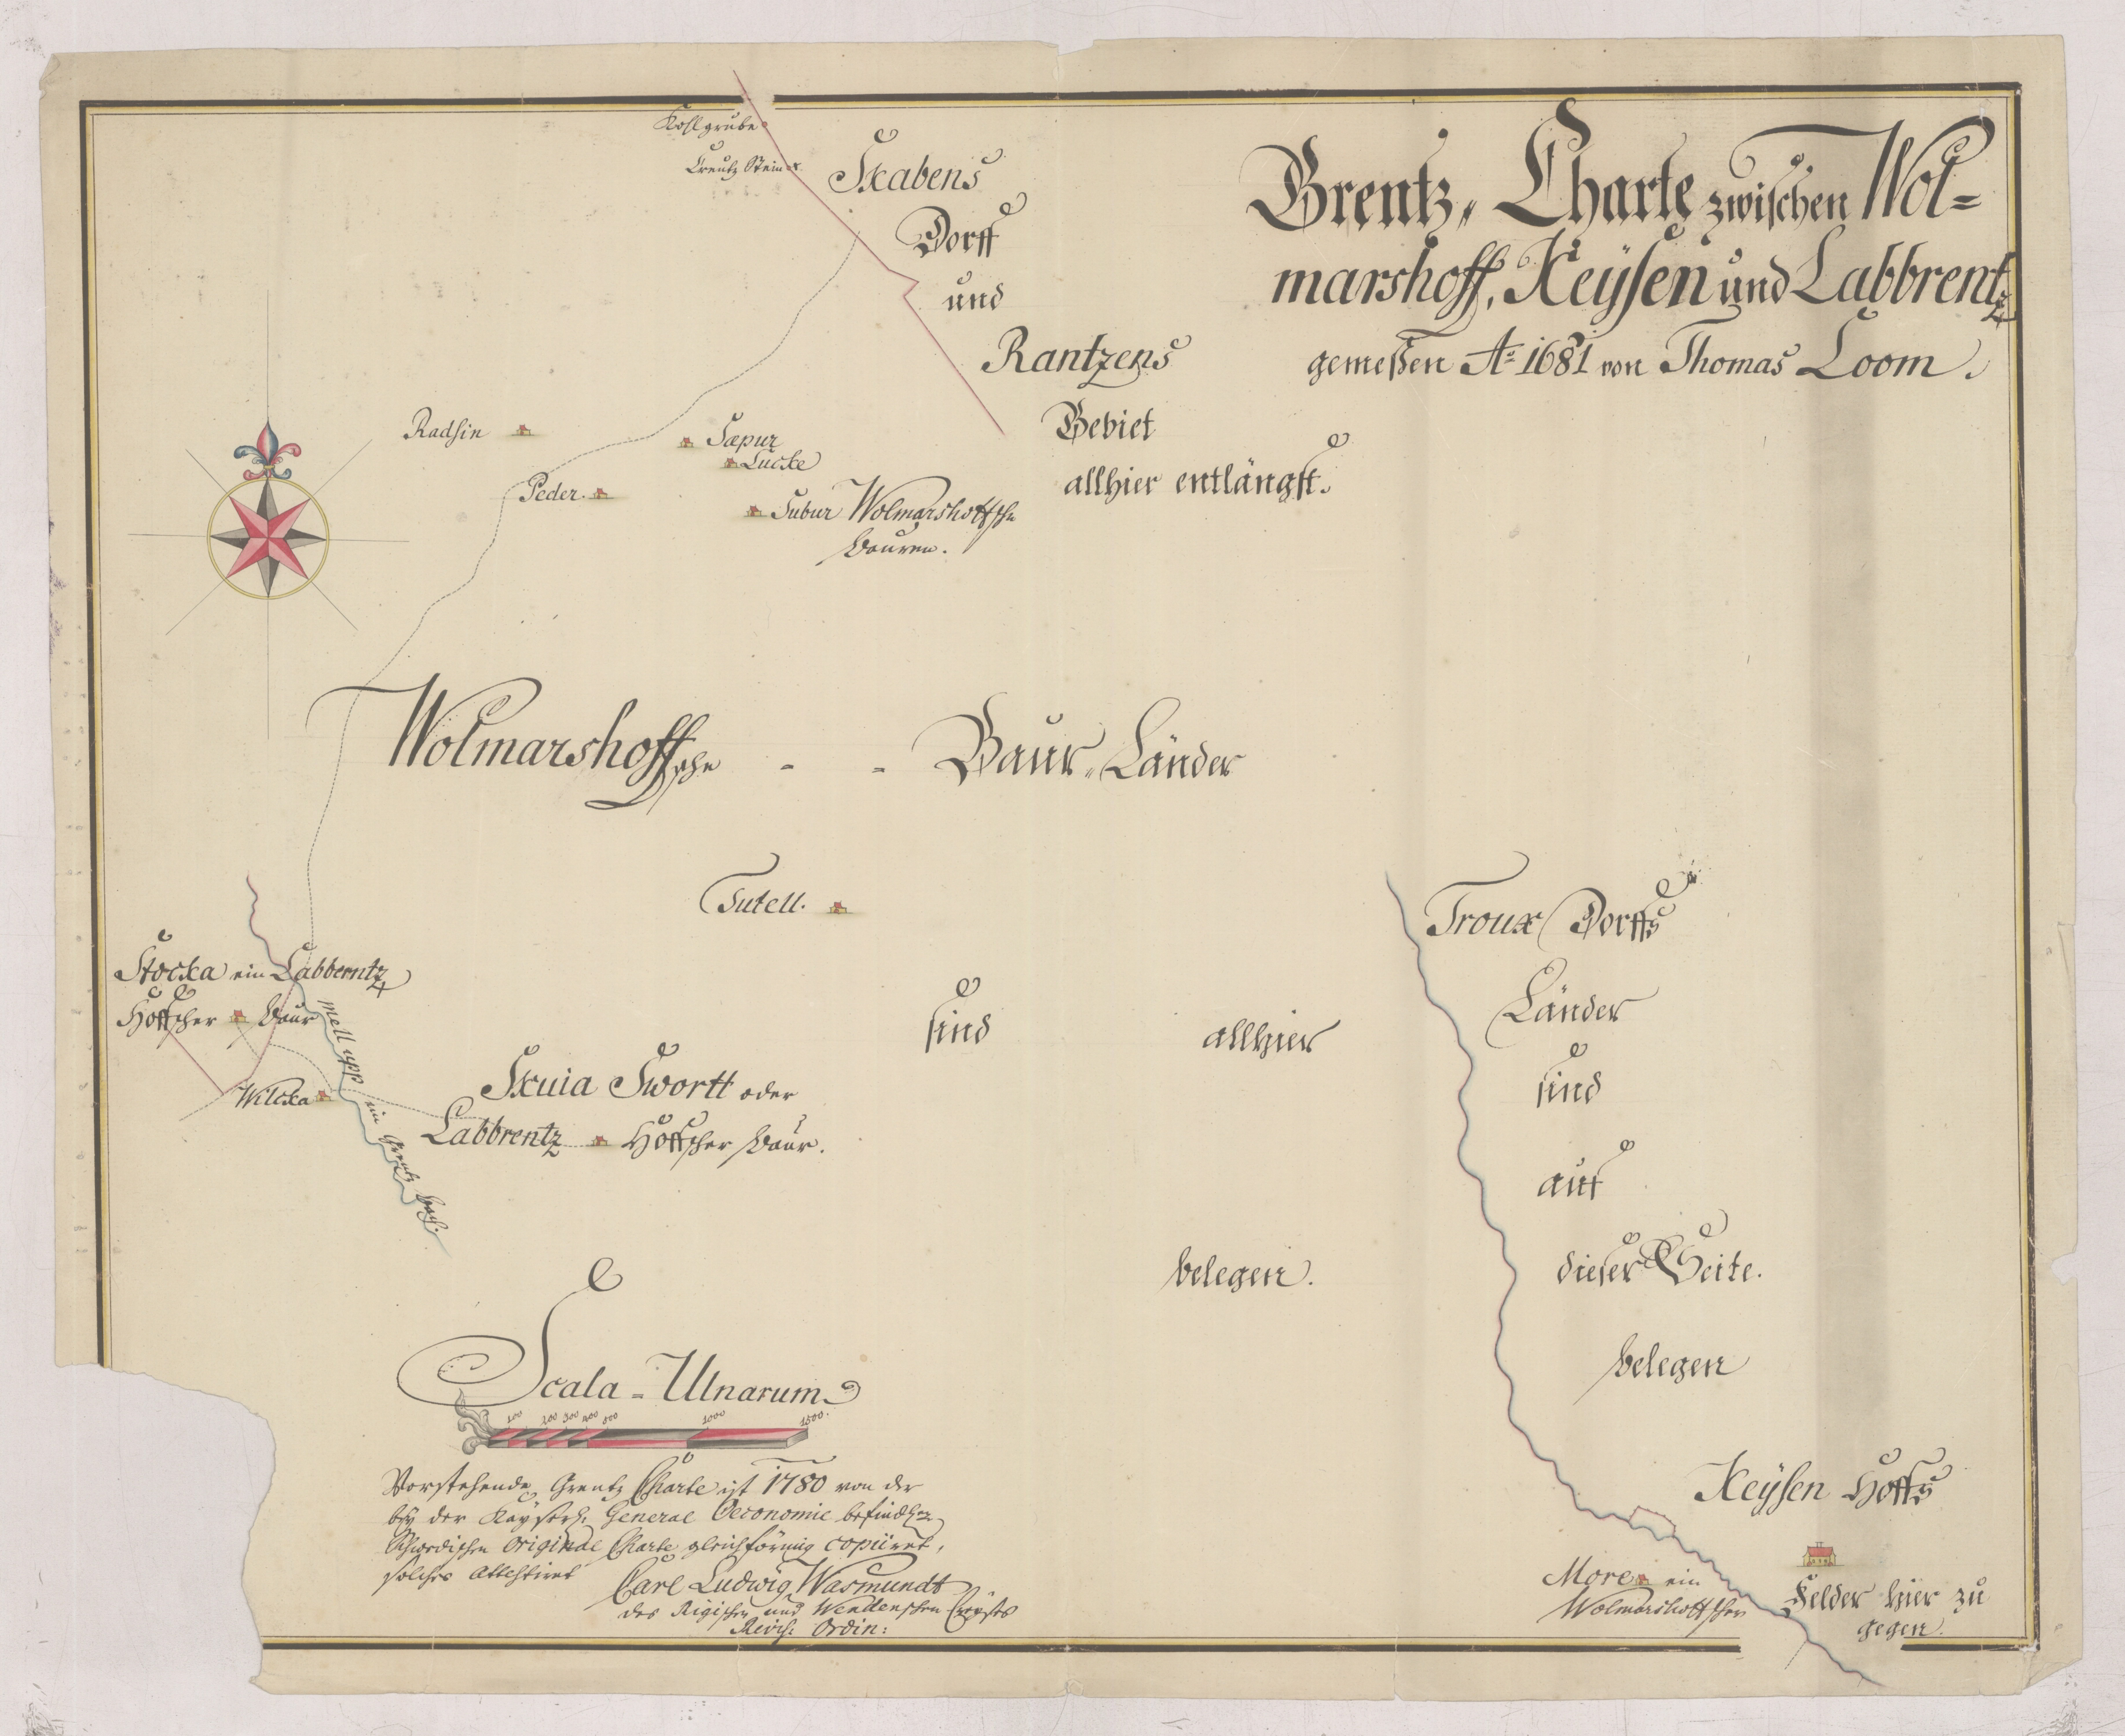 Grentz, Charte zwischen Wol=
marshoff, Keysen und Labbrentz
gemeßen Aº 1681 von Thomas Loom.
Kohlgrube
Creutz Stein
Skabens
Dorff
und
Rantzens
Gebiet
allhier entlängst.
Radsin
Sæpur
Lucke
Peder.
Subur Wolmarshoffsche
Bauren.
Wolmarshoffsche - - Baur, Länder
Tutell.
sind allhier
belegen.
Stocka ein Labberntz
Höffscher Baur
Mell upp ein Grentz Bach.
Wilcka
Skuia Swortt oder
Labbrentz Höffscher Baur.
Troux Dorffs
Länder
sind
auf
dieser Seite.
belegen
Keysen Hoffs
Felder hier zu
gegen.
More ein
Wolmarshoffscher
Scala - Ulnarum
100 200 300 400 500 1000 1500.
Vorstehende Grentz Charte ist 1780 von der
bey der Kayserl. General Oeconomie befindl.
Schwedischen Original Charte gleichförmig copiiret,
solches attestiret
Carl Ludwig Wasmundt
des Rigischen und Wendenschen Creyses
Revis: Ordin: